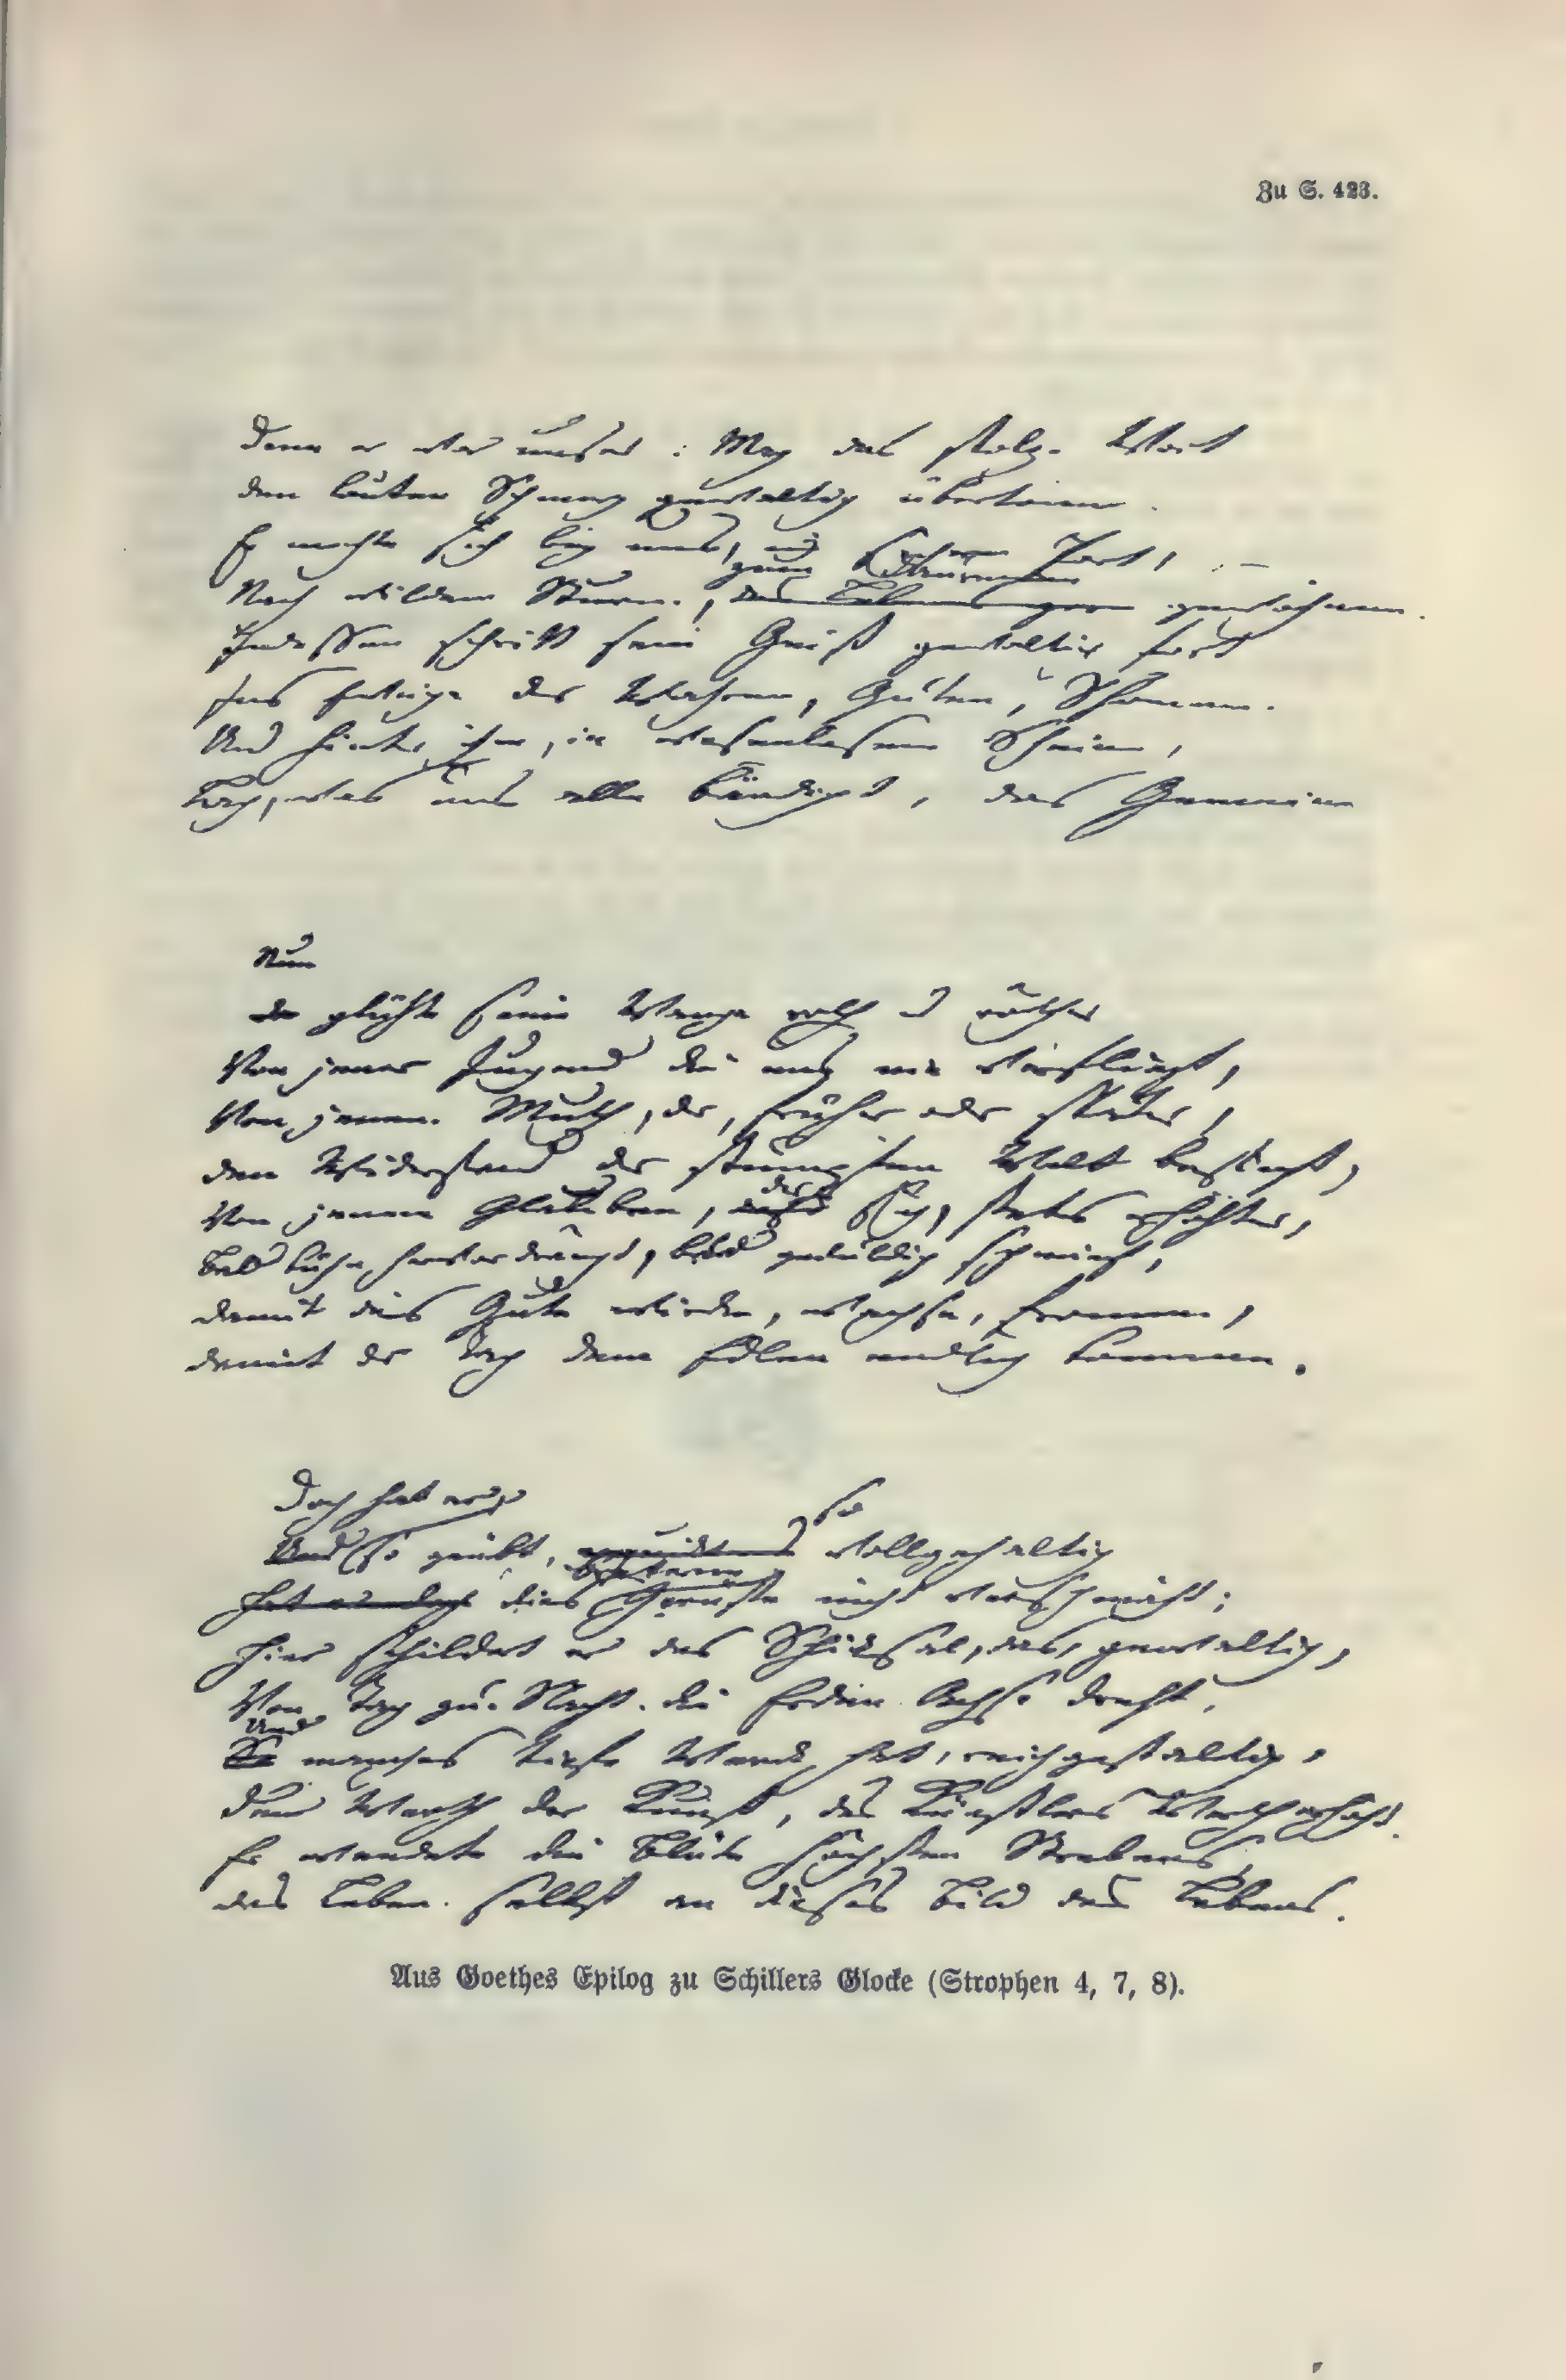 Zu S. 423.
Denn er war unser: Mag das stolze Wort
den lauten Schmerz gewaltig übertönen.
Er mochte sich bey uns, im sichern Port,
zum Dauernden
Nach wildem Sturm, das Lebens gern gewöhnen.
Indessen schritt sein Geist gewaltig fort
Ins Ewige des Wahren, Guten, Schönen.
Und hinter ihm, in wesenlosem Scheine,
Lag, was uns alle bändigt, das Gemeine
Nun
da glühte seine Wange roth u röther
Von jener Jugend die uns nie verfliegt,
Von jenem Muth, der, früher oder später,
den Widerstand der stumpfen Welt besiegt,
der
Von jenem Glauben, sich, stets erhöhter,
Bald kühn hervordrängt, bald geduldig schmiegt,
damit das Gute wirke, wachse, fromme,
damit der Tag dem Edlen endlich komme.
Doch hat er, so
Und so geübt, vollgehaltig
bretterne
hat er doch dies Gerüste nicht verschmäht;
Hier schildert er das Schicksal, das, gewaltig,
Von Tag zu Nacht die Erden Achse dreht,
Und
So manches tiefe Werck hat, reichgestaltig,
Den Werth der Kunst, des Künstlers Werth erhöht.
Er wendete die Blüte höchsten Strebens,
das Leben selbst an dieses Bild des Lebens.
Aus Goethes Epilog zu Schillers Glocke (Strophen 4, 7, 8).